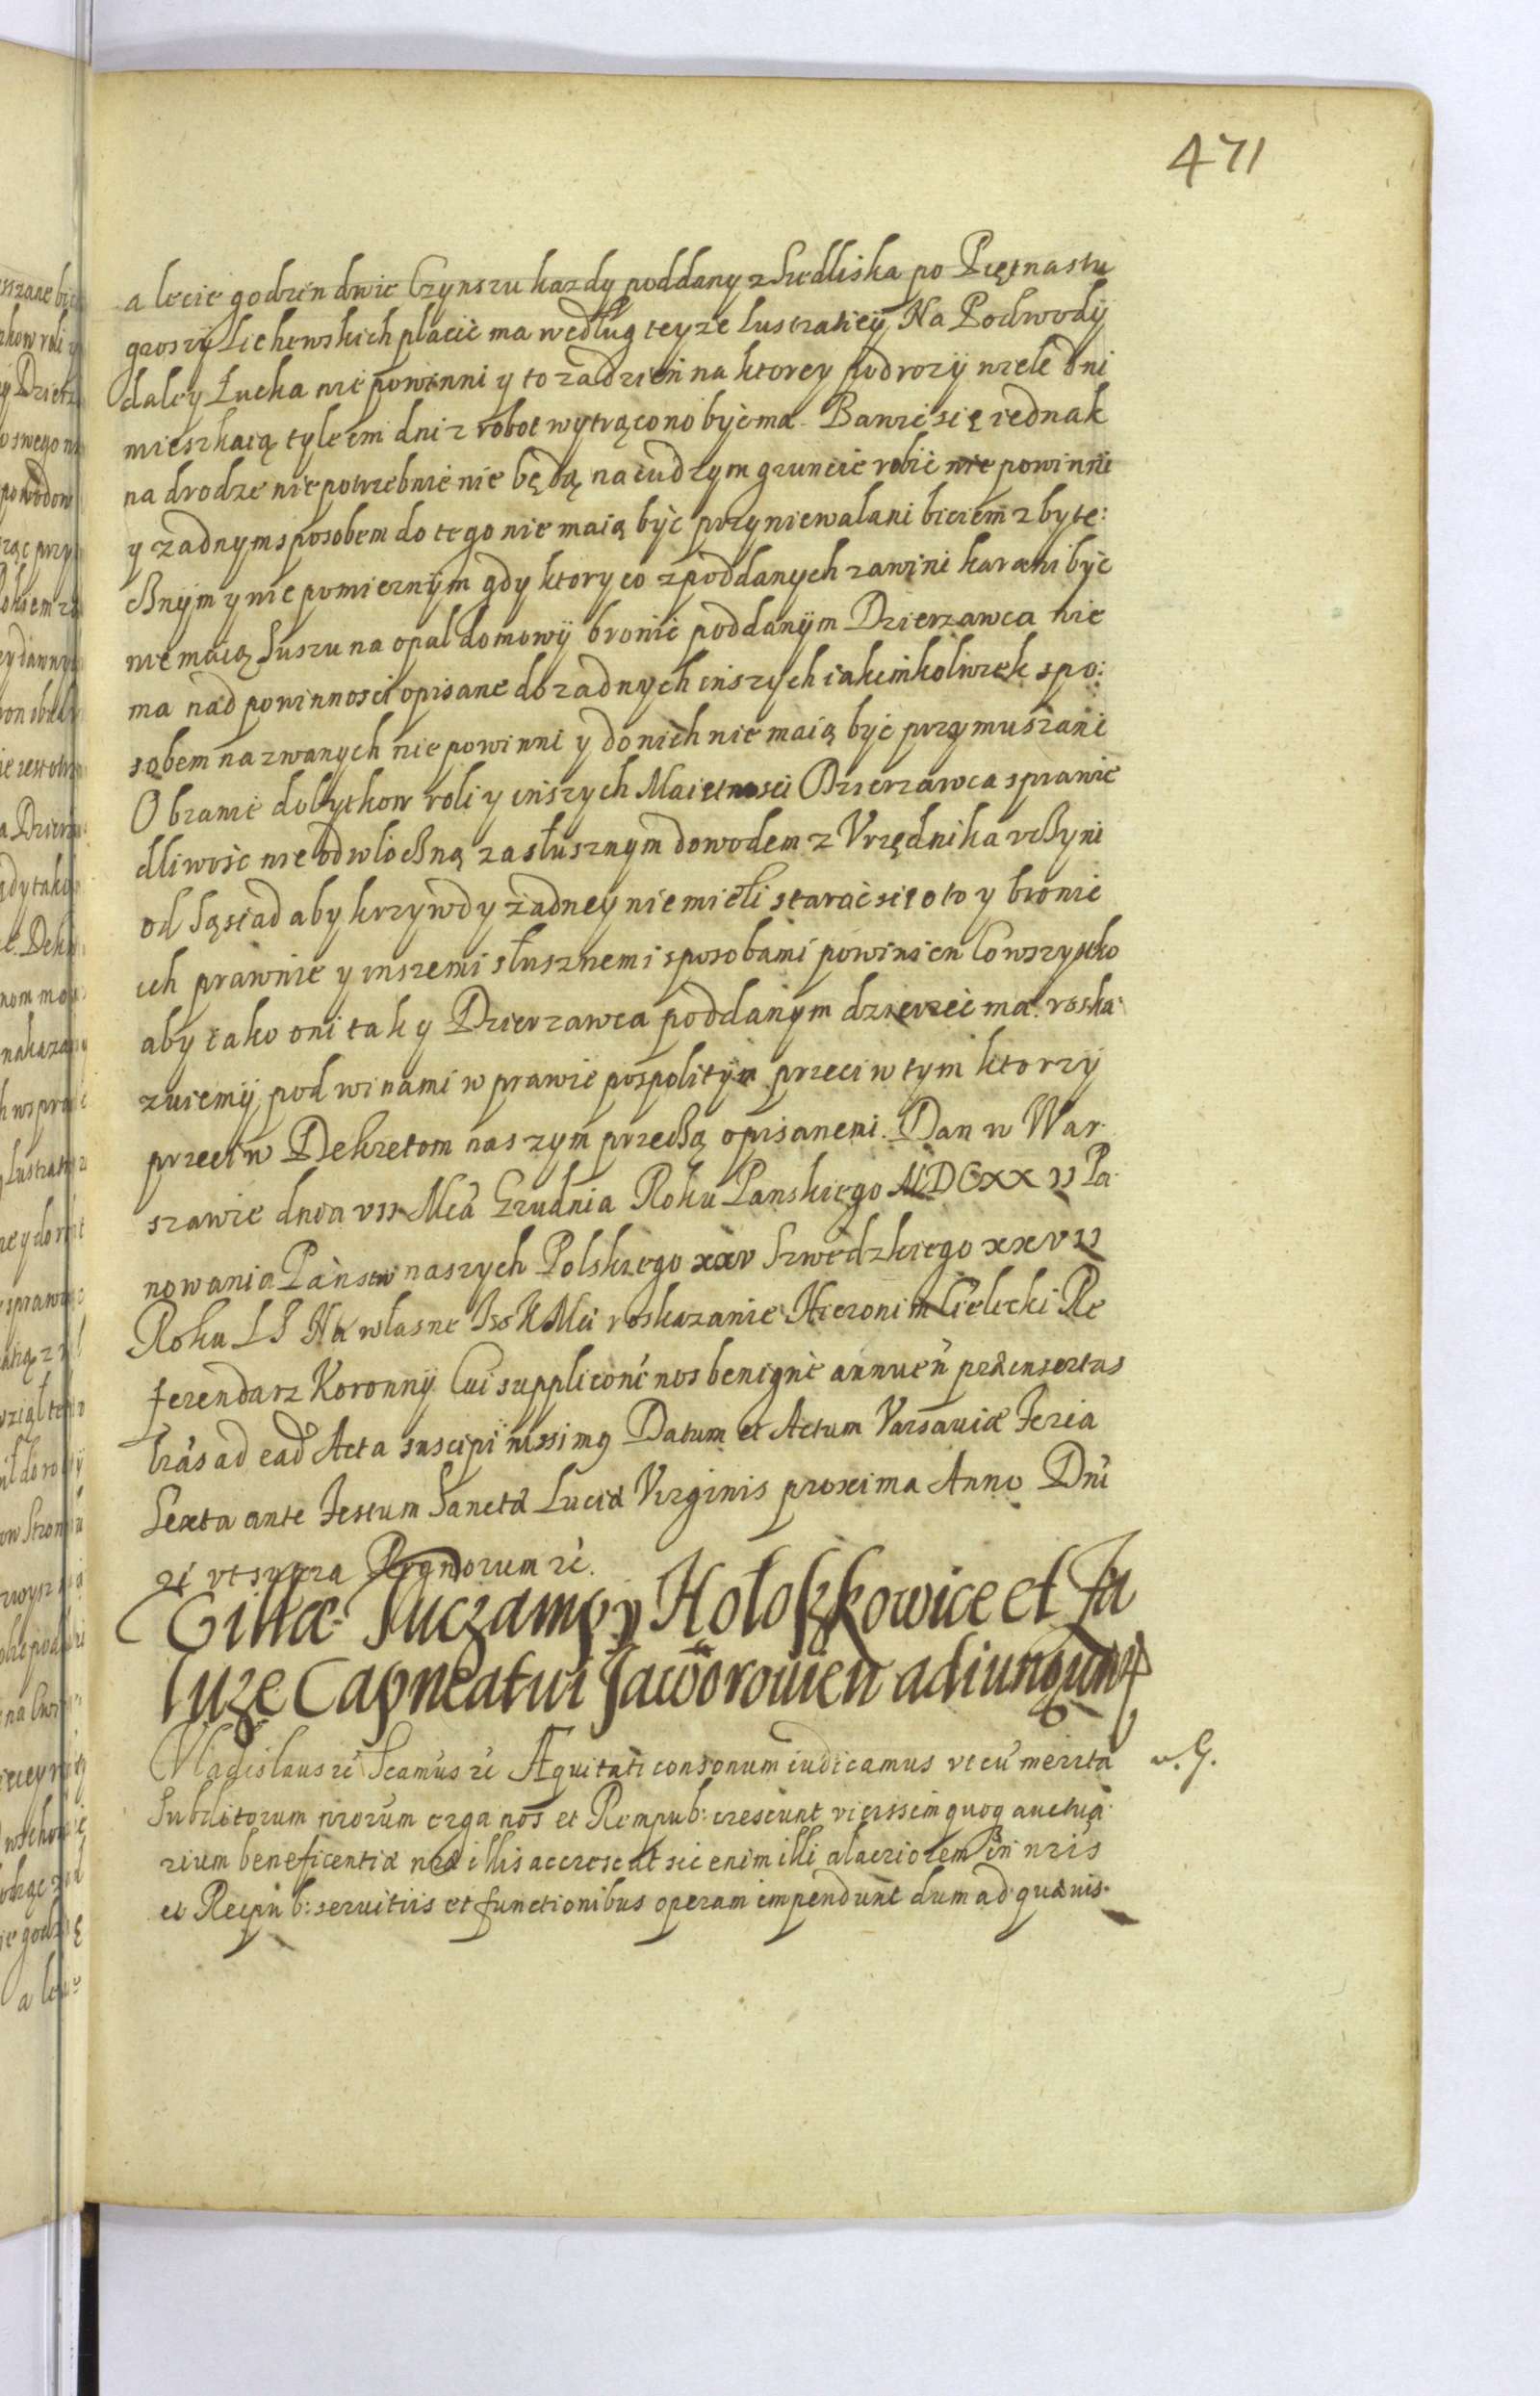 471
a lecie godzin dwie Czynszu kazdy poddany z Siedliska po Piętnastu
groszÿ Lichewskich płacić ma według teyze lustratieÿ Na Podwodÿ
daley Łucka nie powinni y to za dzień na ktorey podrozÿ wiele dni
mieszkaią tyle im dni z robot wytrącono być ma. Bawić się iednak
na drodze niepotrzebnie nie będą na cudzym gruncie robić nie powinni
y zadnym sposobem do tego nie maią być przyniewalani biciem zbyte:
cznÿm y nie pomiernÿm gdy ktory co z poddanych zawini karani być
nie maią Suszu na opal domowÿ bronić poddanÿm Dzierzawca nie
ma nad powinnosci opisane do zadnych inszych iakimkolwiek spo:
sobem nazwanych nie powinni y do nich nie maią być przymuszani
O branie dobytkow roli y inszych Maietnosci Dzierzawca sprawie
dliwość nie odwłoczną za słusznym dowodem z Vrzędnika vczyni
od Sąsiad aby krzywdy żadney nie mieli starać się o to y bronić
ich prawnie y inszemi słusznemi sposobami powinien Co wszystko
aby iako oni tak y Dzierzawca poddanym dzierzeć ma. roska
zuiemÿ pod winami w prawie pospolitÿm przeciw tym ktorzÿ
przeciw Dekretom naszym przeczą opisanemi. Dan w War
szawie dnia VII Mca Grudnia Roku Panskiego MDCXXII Pa
nowania Państw naszych Polskiego XXXV Szwedzkiego XXVII
Roku LS Na własne Jeo K Mci roskazanie Hieronim Cielecki Re
ferendarz Koronnÿ Cui suppliconi nos benigne annuen præinsertas
lras ad ead Acta suscipi iussimq Datum et Actum Varsaviæ Feria
Sexta ante Festum Sanctæ Luciæ Virginis proxima Anno Dni
zc vt supra Regnorum zc.
Villæ Tuczampy Holoszkowice et Za
luze Capneatui Jaworovien adiungunt
Vladislaus zc Scamus zc Æquitati consonum iudicamus vt cu merita
Subditorum nrorum erga nos et Rempub: crescunt vicissim quoq auctua
rium beneficentiæ nræ illis accrescat sic enim illi alacriorem in nris
et Reipub: servitiis et functionibus operam impendunt dum ad quævis